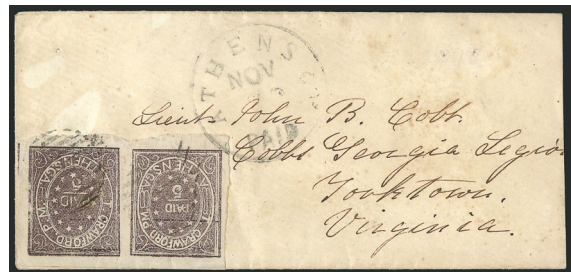 ATHENS GA.
NOV
PAID
Lieut. John B. Cobb.
Cobbs Georgia Legion
Yorktown.
Virginia.
PAID
5
T. CRAWFORD P.M.
ATHENS, GA.
PAID
5
T. CRAWFORD P.M.
ATHENS, GA.